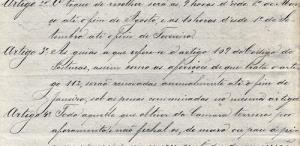 Artigo 2º O toque de recolher será as 9 horas desde 1º de Mar
ço até o fim de Agosto, e as 10 horas desde 1º de Se
tembro até o fim de Fevereiro.
Artigo 3º As guias a que refere-se o artigo 109 do Codigo de
Posturas, assim como as aferições de que trata o arti
go 112, serão renovadas annualmente até o fim de
Janeiro, sob as penas comminadas no mesmo artigo
Artigo 4º Todo aquelle que obtiver da Camara terrenos por
aforamento, e não fechal-os, de muro ou pau á pi